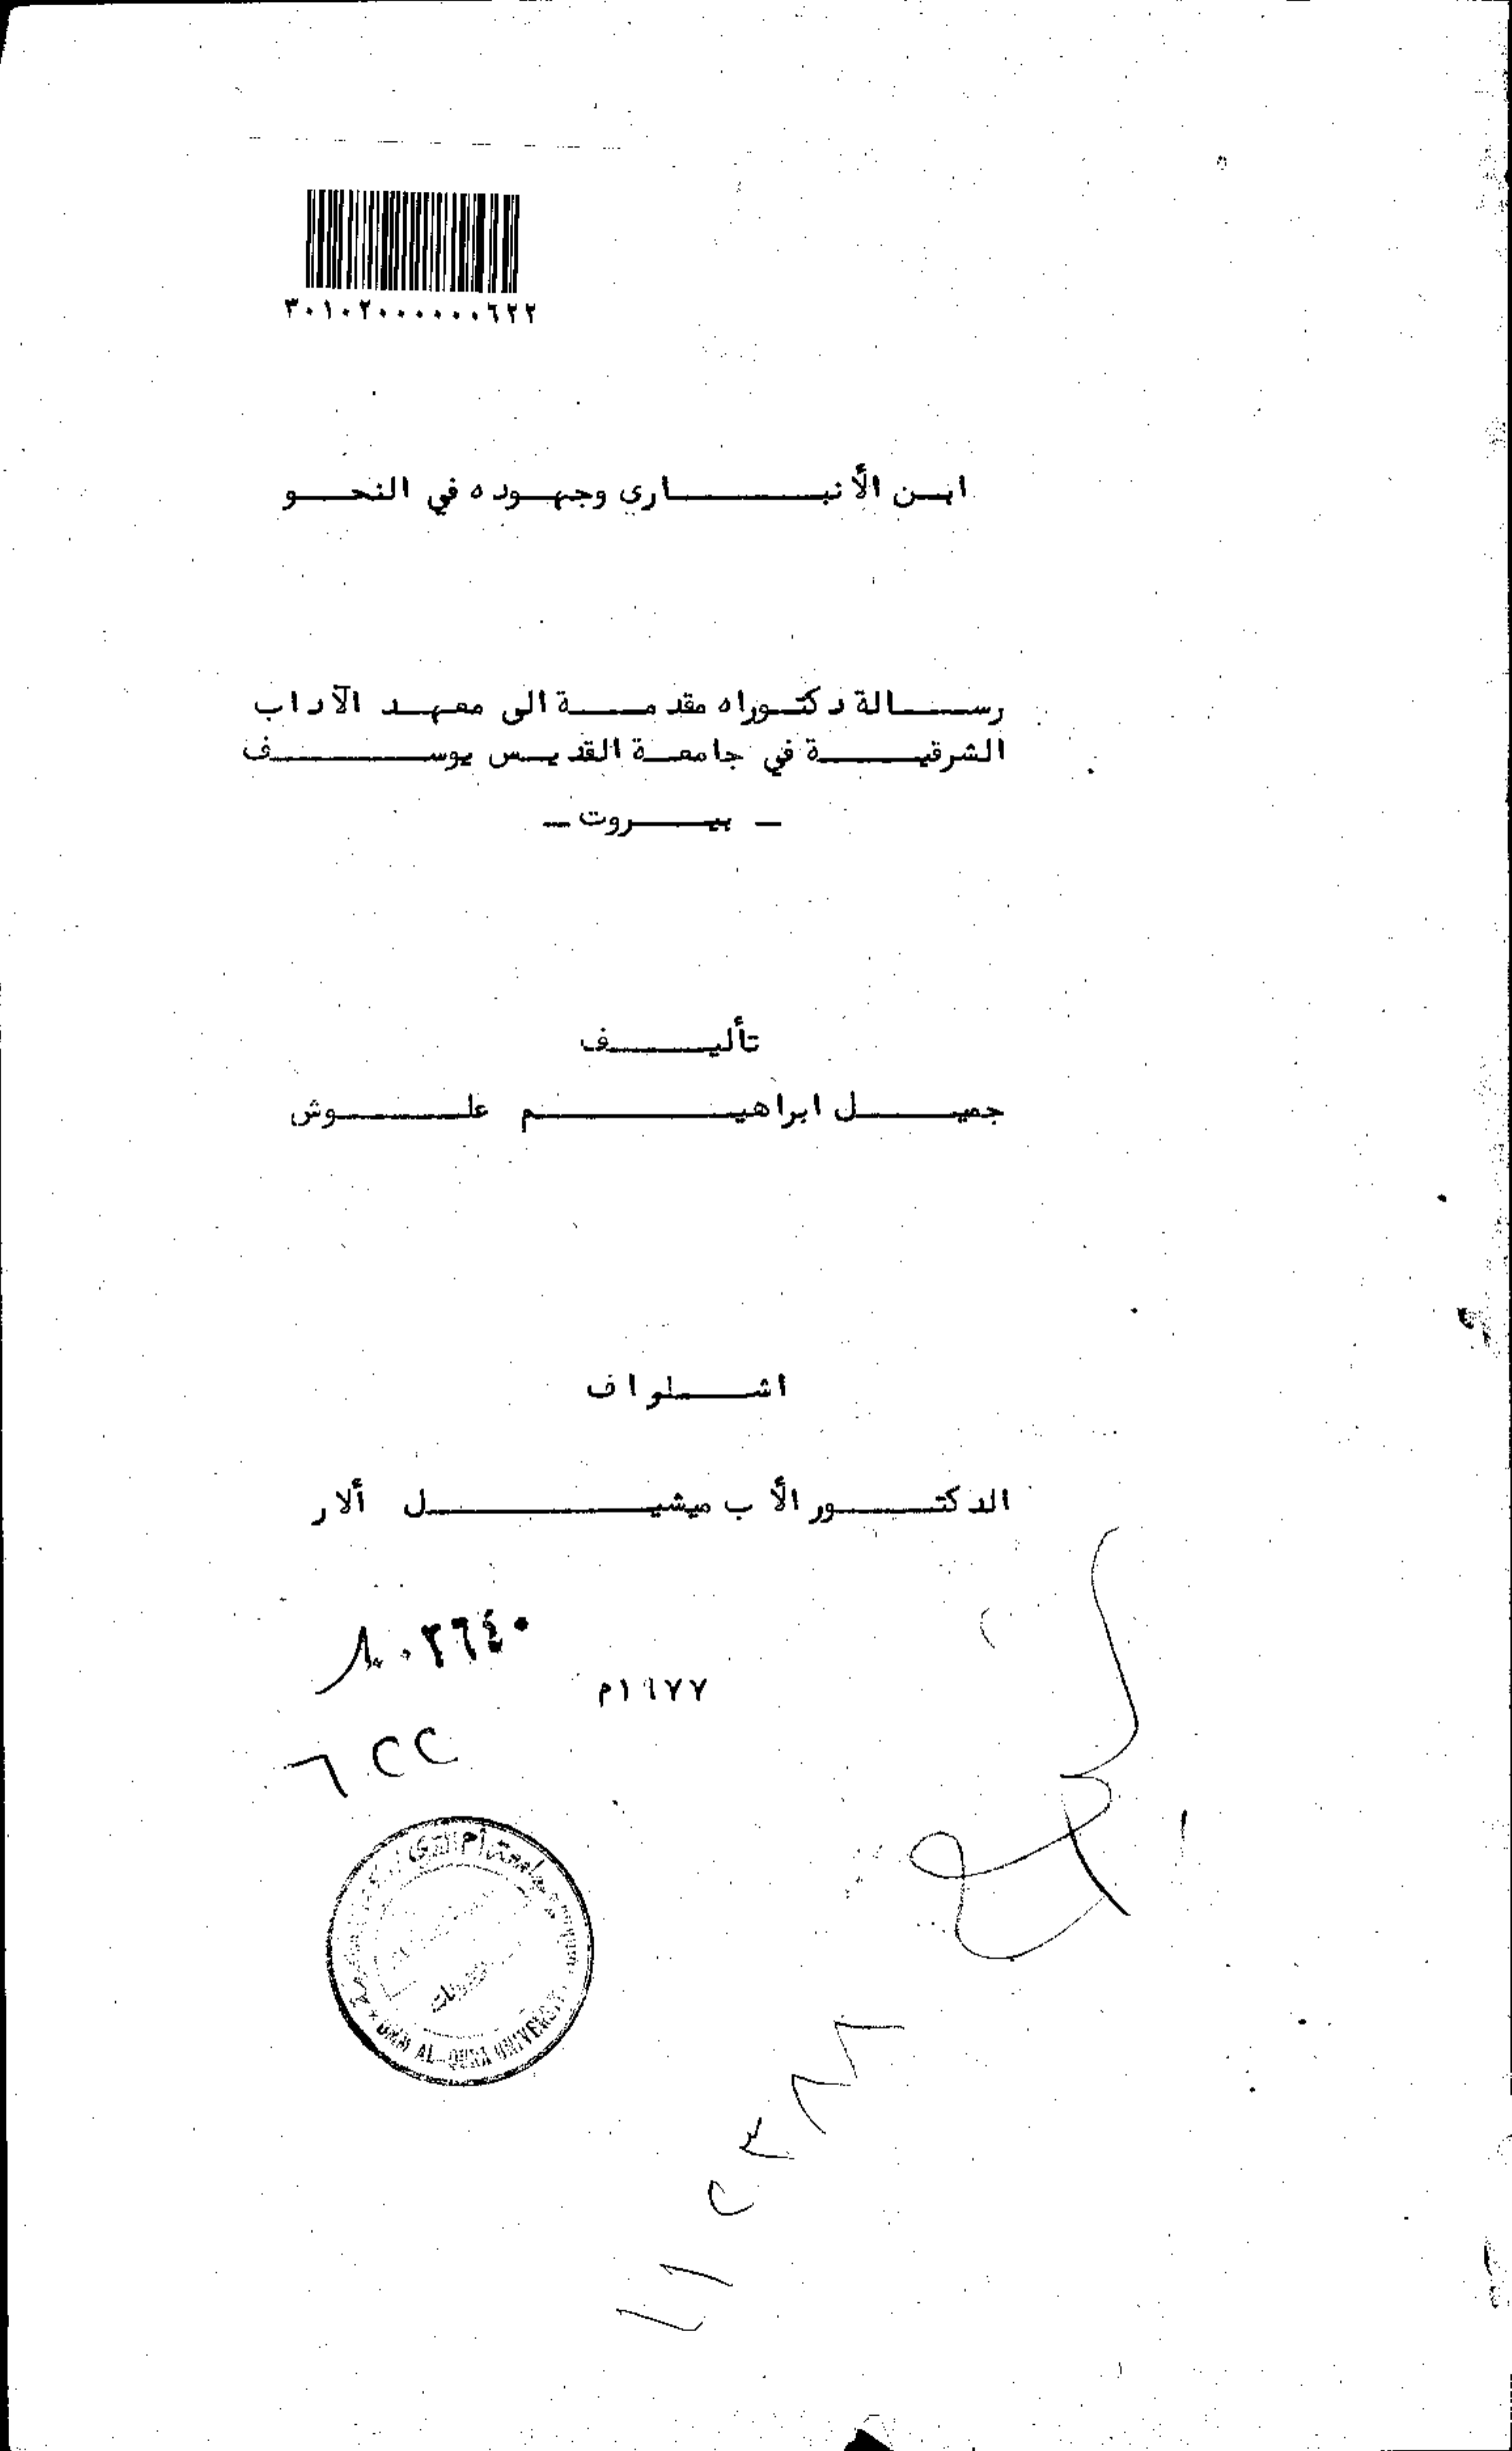 ٣٠١٠٢٠٠٠٠٠٠٦٢٢
ابن الأنباري وجهوده في النحو
رسالة دكتوراه مقدمة الى معهد الآداب
الشرقية في جامعة القديس يوسف
- بيروت -
تأليف
جميل ابراهيم علوش
اشراف
الدكتور الأب ميشيل ألار
٢٦٤٠
١٩٧٧م
٦٢٢
جامعة أم القرى
UMM AL-QURA UNIVERSITY